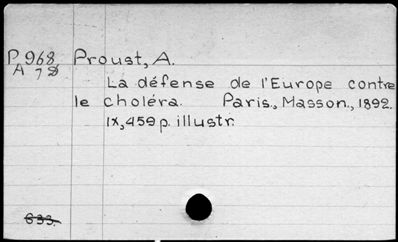 P 968 Proust, A.
A 78
La défense de l'Europe contre
le choléra. Paris, Masson, 1892.
IX, 459 p. illustr.
633.